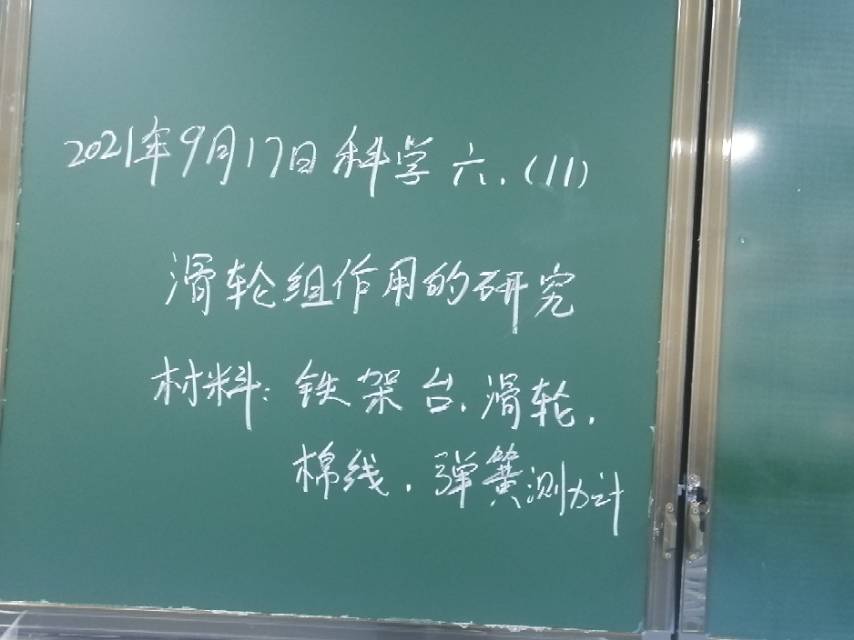 2021年9月17日科学六.(11)
滑轮组作用的研究
材料:铁架台.滑轮.
棉线.弹簧测力计